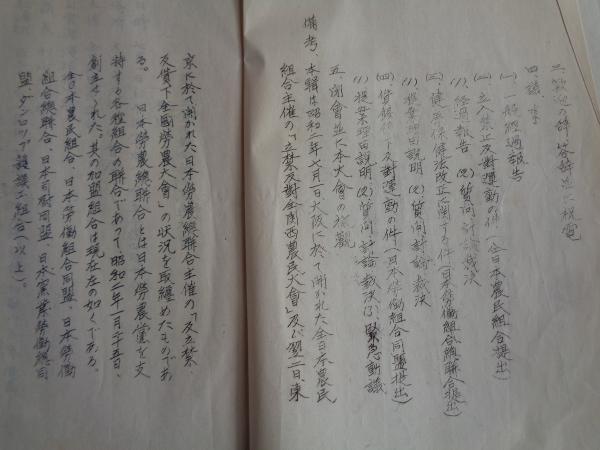 三、歓迎の辞、答辞並に祝電
四、議事
(一) 一般経過報告
(二) 立入禁止反対運動の件（全日本農民組合提出）
(1) 経過報告 (2) 質問討論裁決
(三) 健康保険法改正に関する件（日本労働組合総聯合提出）
(1) 提案理由説明 (2) 質問討論裁決
(四) 賃銀値下反対運動の件（日本労働組合同盟提出）
(1) 提案理由説明 (2) 質問討論裁決 (3) 緊急動議
五、閉会並に本大会の概観
備考、本輯は昭和二年七月一日大阪に於て開かれた全日本農民
組合主催の「立禁反対全関西農民大会」及び翌二日、東
京に於て開かれた日本労農総聯合主催の「反立禁
反賃下全国労農大会」の状況を取纏めたものであ
る。 日本労農総聯合とは日本労農党を支
持する各種組合の聯合であつて、昭和二年一月二十五日、
創立せられた。其の加盟組合は現在左の如くである。
全日本農民組合、日本労働組合同盟、日本労働
組合総聯合、日本司厨同盟、日本窯業労働総同
盟、ダンロップ護謨工組合（以上）。